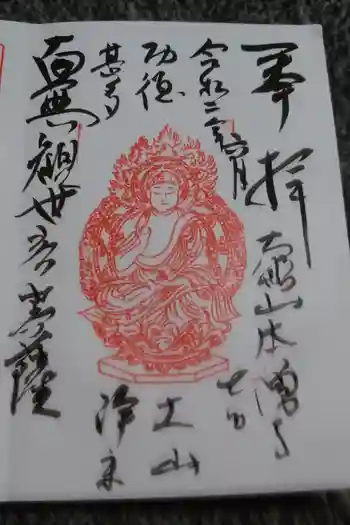 奉拝
亀山本徳寺
令和二年六月
七日
功徳
土山
甚多
浄来
南無観世音菩薩